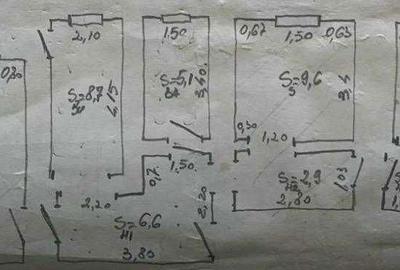 2,10
1.50
0,67
1,50
0,63
S=8,7
4,15
S=5,1
3,40
S=9,6
3,4
0,50
1,20
1.50
0,7
2,20
2,20
S=2,9
1,03
2,80
S=6,6
H1
3,80